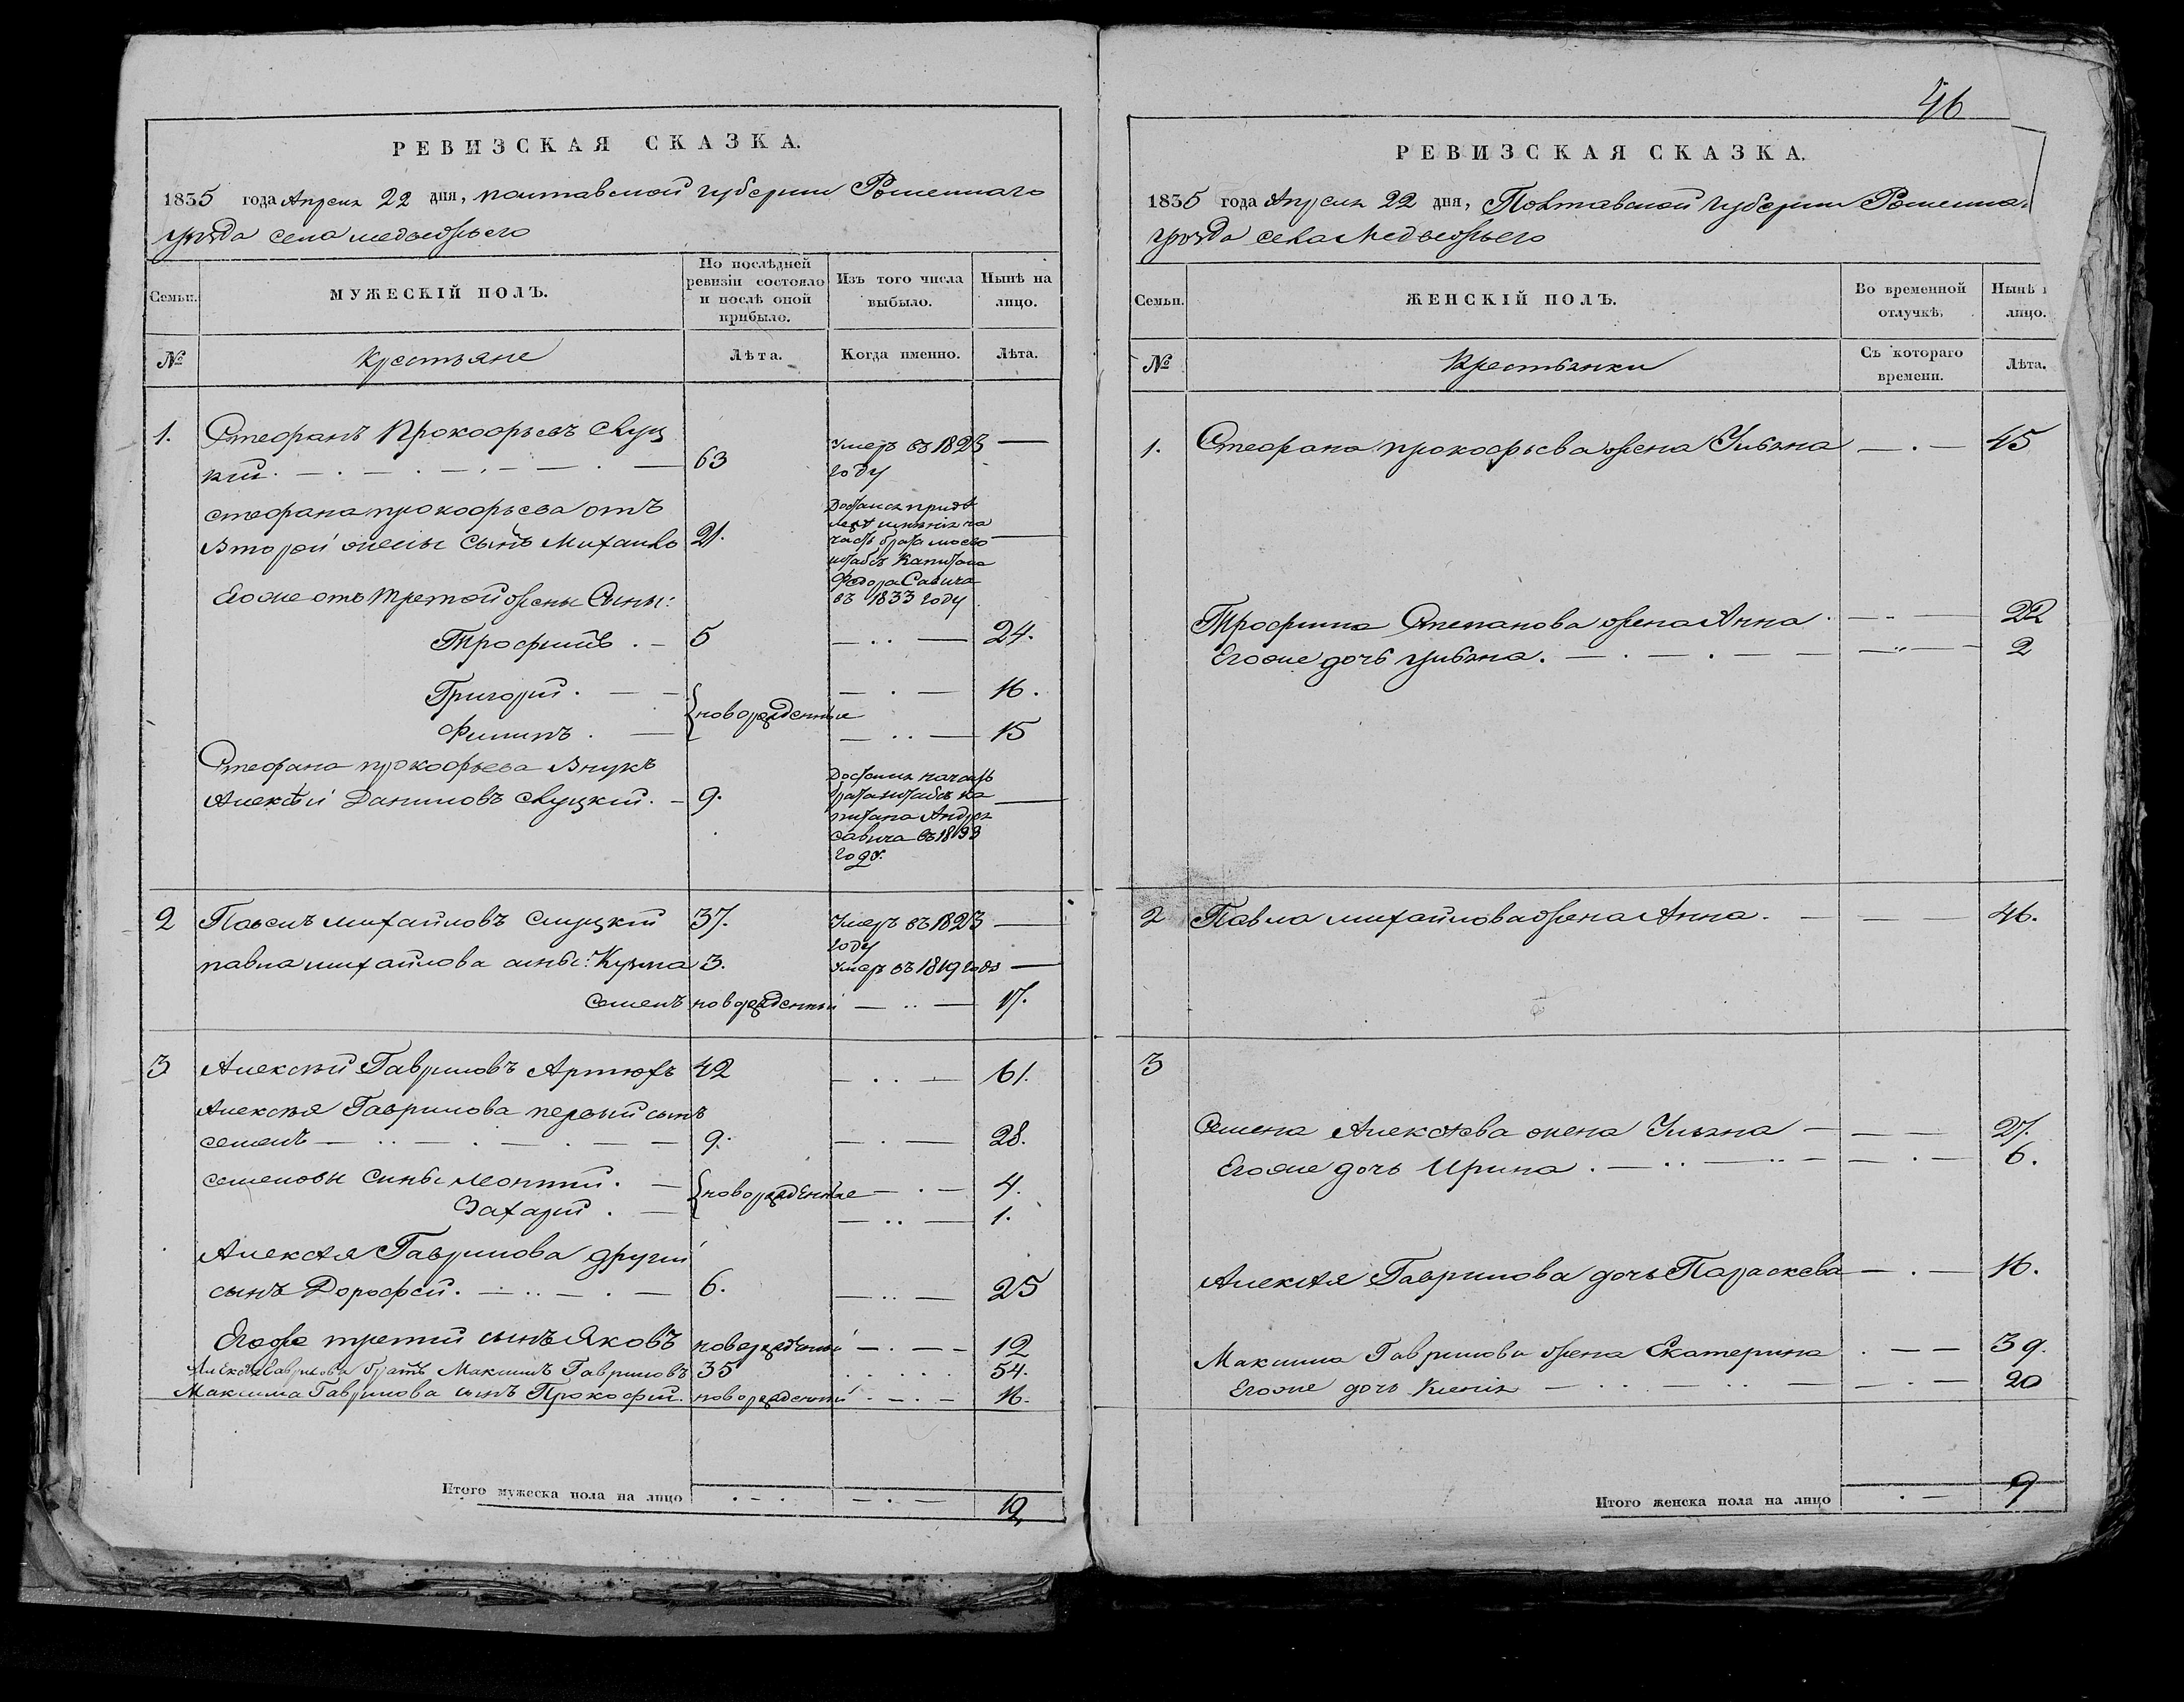 РЕВИЗСКАЯ СКАЗКА.
1835 года Апреля 22 дня, полтавской губернии Роменнаго
уезда села медвежьего
Семьи.
МУЖЕСКІЙ ПОЛЪ.
По послѣдней
ревизіи состояло
и послѣ оной
прибыло.
Изъ того числа
выбыло.
Нынѣ на
лицо.
№
Крестьяне
Лѣта.
Когда именно.
Лѣта.
1. Стефанъ Прокофьевъ Слуц
кій 63 Умеръ въ 1823 —
году
стефана прокофьева отъ
Второй жены сынъ Михайло 21.
Достался
части брата моего
штабсъ Капитана
Федора Савича
въ 1833 году
Егоже отъ третой жены Сыны:
Трофимъ . — 5 — .. — 24.
Григорій . — — . — 16.
новорожденные
Филипъ . — — .. — 15
Стефана прокофьева Внукъ
Алексѣй Даниловъ Слуцкій . — 9.
Достался
брата штабсъ ка
питана Андрея
савича въ
году.
2 Павелъ михайловъ слуцкій 37. Умеръ въ 1823 —
году
павла михайлова сыны: Кузма 3. Умеръ въ 1819 году —
семенъ новорожденный — .. — 17.
3 Алексей Гавриловъ Артюхъ 42 — .. — 61.
Алексѣя Гаврилова первый сынъ
семенъ — 9. — . — 28.
семеновы сыны леонтій . — новорожденные — . — 4.
Захарій . — — .. — 1.
Алексѣя Гаврилова другій
сынъ Дорофей . — 6. — .. — 25
Егоже третий сынъ Яковъ новорожденный — . — 12
Алексѣя Гаврилова братъ Максимъ Гавриловъ 35 . . . . . 54.
Максима Гаврилова сынъ Прокофій. новорожденный . — . — 16.
Итого мужеска пола на лицо . — . — . — 12,
46
РЕВИЗСКАЯ СКАЗКА.
1835 года Апреля 22 дня, Полтавской губернии Роменна
уезда села Медвежьего
Семьи.
ЖЕНСКІЙ ПОЛЪ.
Во временной
отлучкѣ.
Нынѣ
лицо.
№
Крестьянки
Съ котораго
времени.
Лѣта.
1. Стефана прокофьева жена Ульяна — . — 45
Трофима Степанова жена Анна . — .. — 22
Егоже дочь ульяна . — . — . — — .. — 2
2 Павла михайлова жена Анна . — — 46.
3
Семена Алексѣева жена Ульяна — — — 27.
Егоже дочь Ирина . — .. — .. — — . — 6.
Алексѣя Гаврилова дочь Параскева — . — 16.
Максима Гаврилова жена Екатерина . — — 39.
Егоже дочь Ксенія — .. — .. — — . — 20
Итого женска пола на лицо . — 9